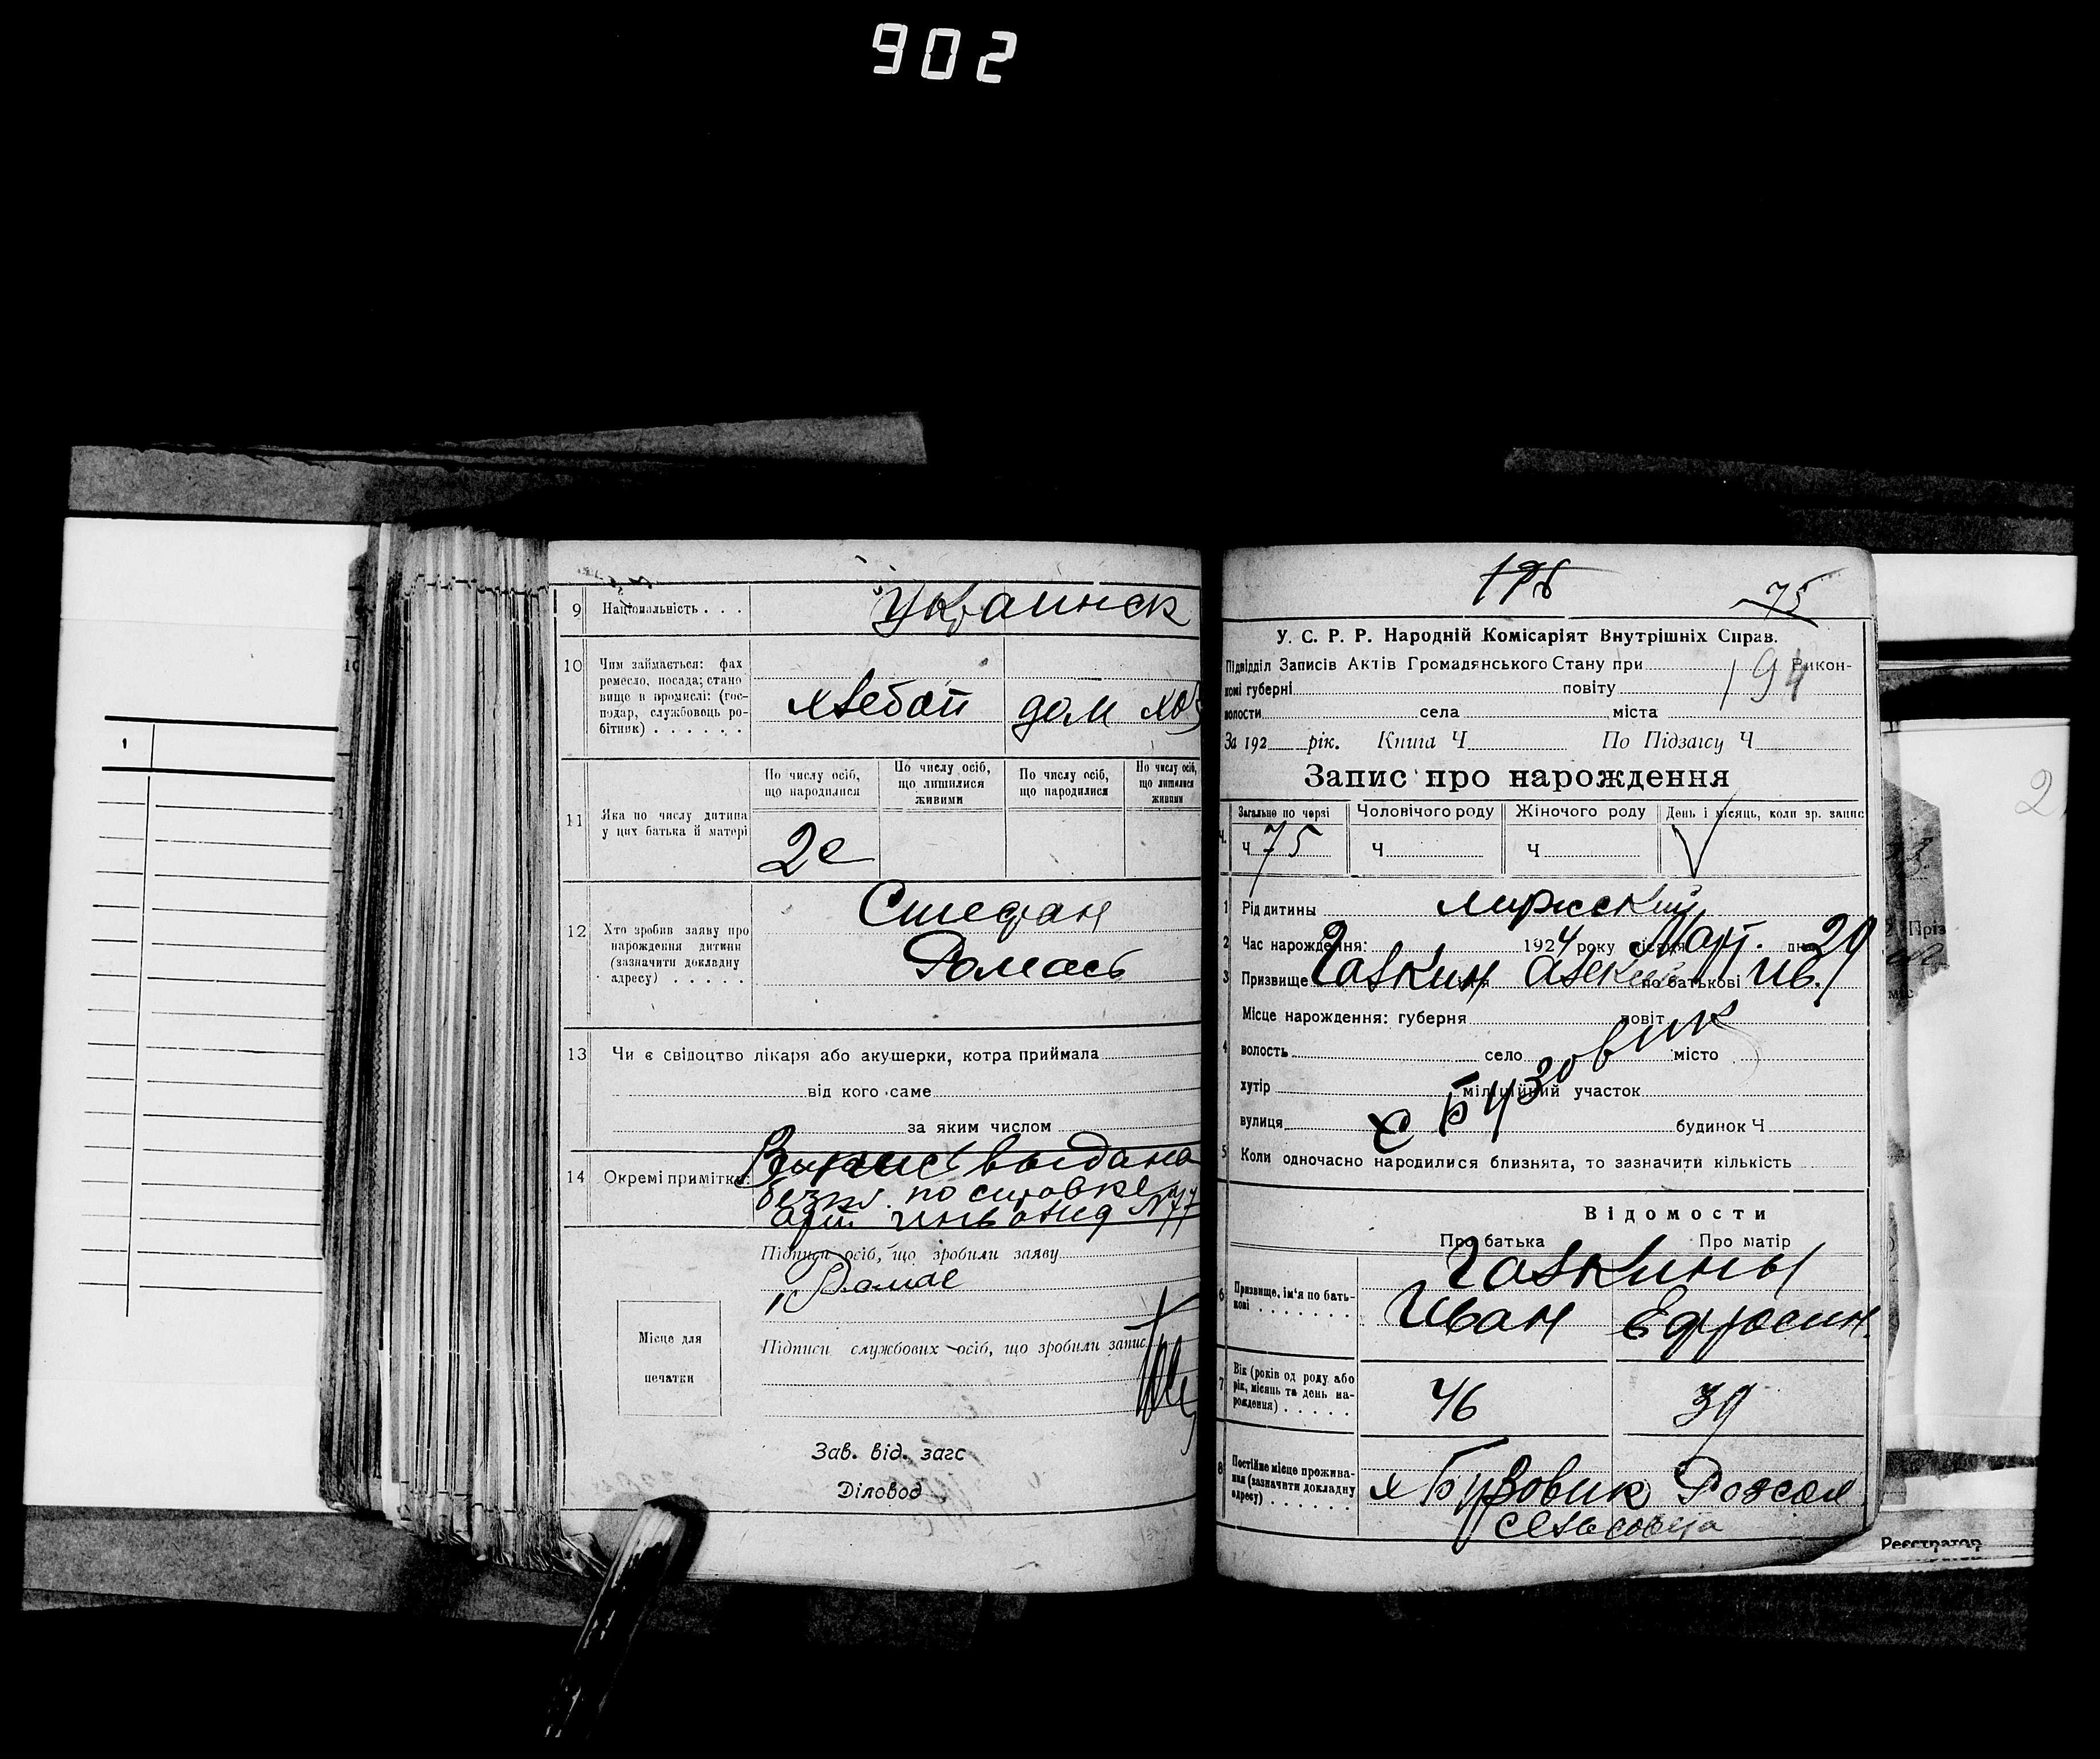 902
9 Національність . . . Украинск
10 Чим займається: фах ремесло, посада; становище в промислі: (господар, службовець робітник) . . . . . .
хлебоп дом хоз
11 Яка по числу дитина у цих батька й матері
По числу осіб, що народилися
По числу осіб, що лишилися живими
По числу осіб, що народилися
По числу осіб, що лишилися живими
2е
12 Хто зробив заяву про нарождення дитини (зазначити докладну адресу) . . . . .
Стефан
Ромась
13 Чи є свідоцтво лікаря або акушерки, котра приймала
від кого саме
за яким числом
14 Окремі примітки:
Випись выдана
по справке
Підписи осіб, що зробили заяву
Ромас
Місце для печатки
Підписи службових осіб, що зробили запис
Зав. від. загс
Діловод
75
У. С. Р. Р. Народній Комісаріят Внутрішніх Справ.
Підвідділ Записів Актів Громадянського Стану при Викон-
комі губерні повіту
194
волости села міста
За 192 рік. Книга Ч По Підзагсу Ч
Запис про нарождення
Загальне по черзі Чоловічого роду Жіночого роду День і місяць, коли зр. запис
Ч 75 Ч Ч
1 Рід дитини мужский
2 Час нарождення: 1924 року місяця Март. дня 29
3 Призвище Галкин по батькові Ив.
4 Місце нарождення: губерня повіт
волость село місто
хутір міліційний участок
х Бузовик
вулиця будинок Ч
5 Коли одночасно народилися близнята, то зазначити кількість
Відомости
Про батька Про матір
6 Призвище, ім'я по батькові . . . . . . .
Галкины
Иван Ефросин.
7 Вік (років од роду або рік, місяць та день нарождення) . . . . .
46 39
8 Постійне місце проживання (зазначити докладну адресу) . . . . . .
х Бузовик
сельсовета
Реєстратор